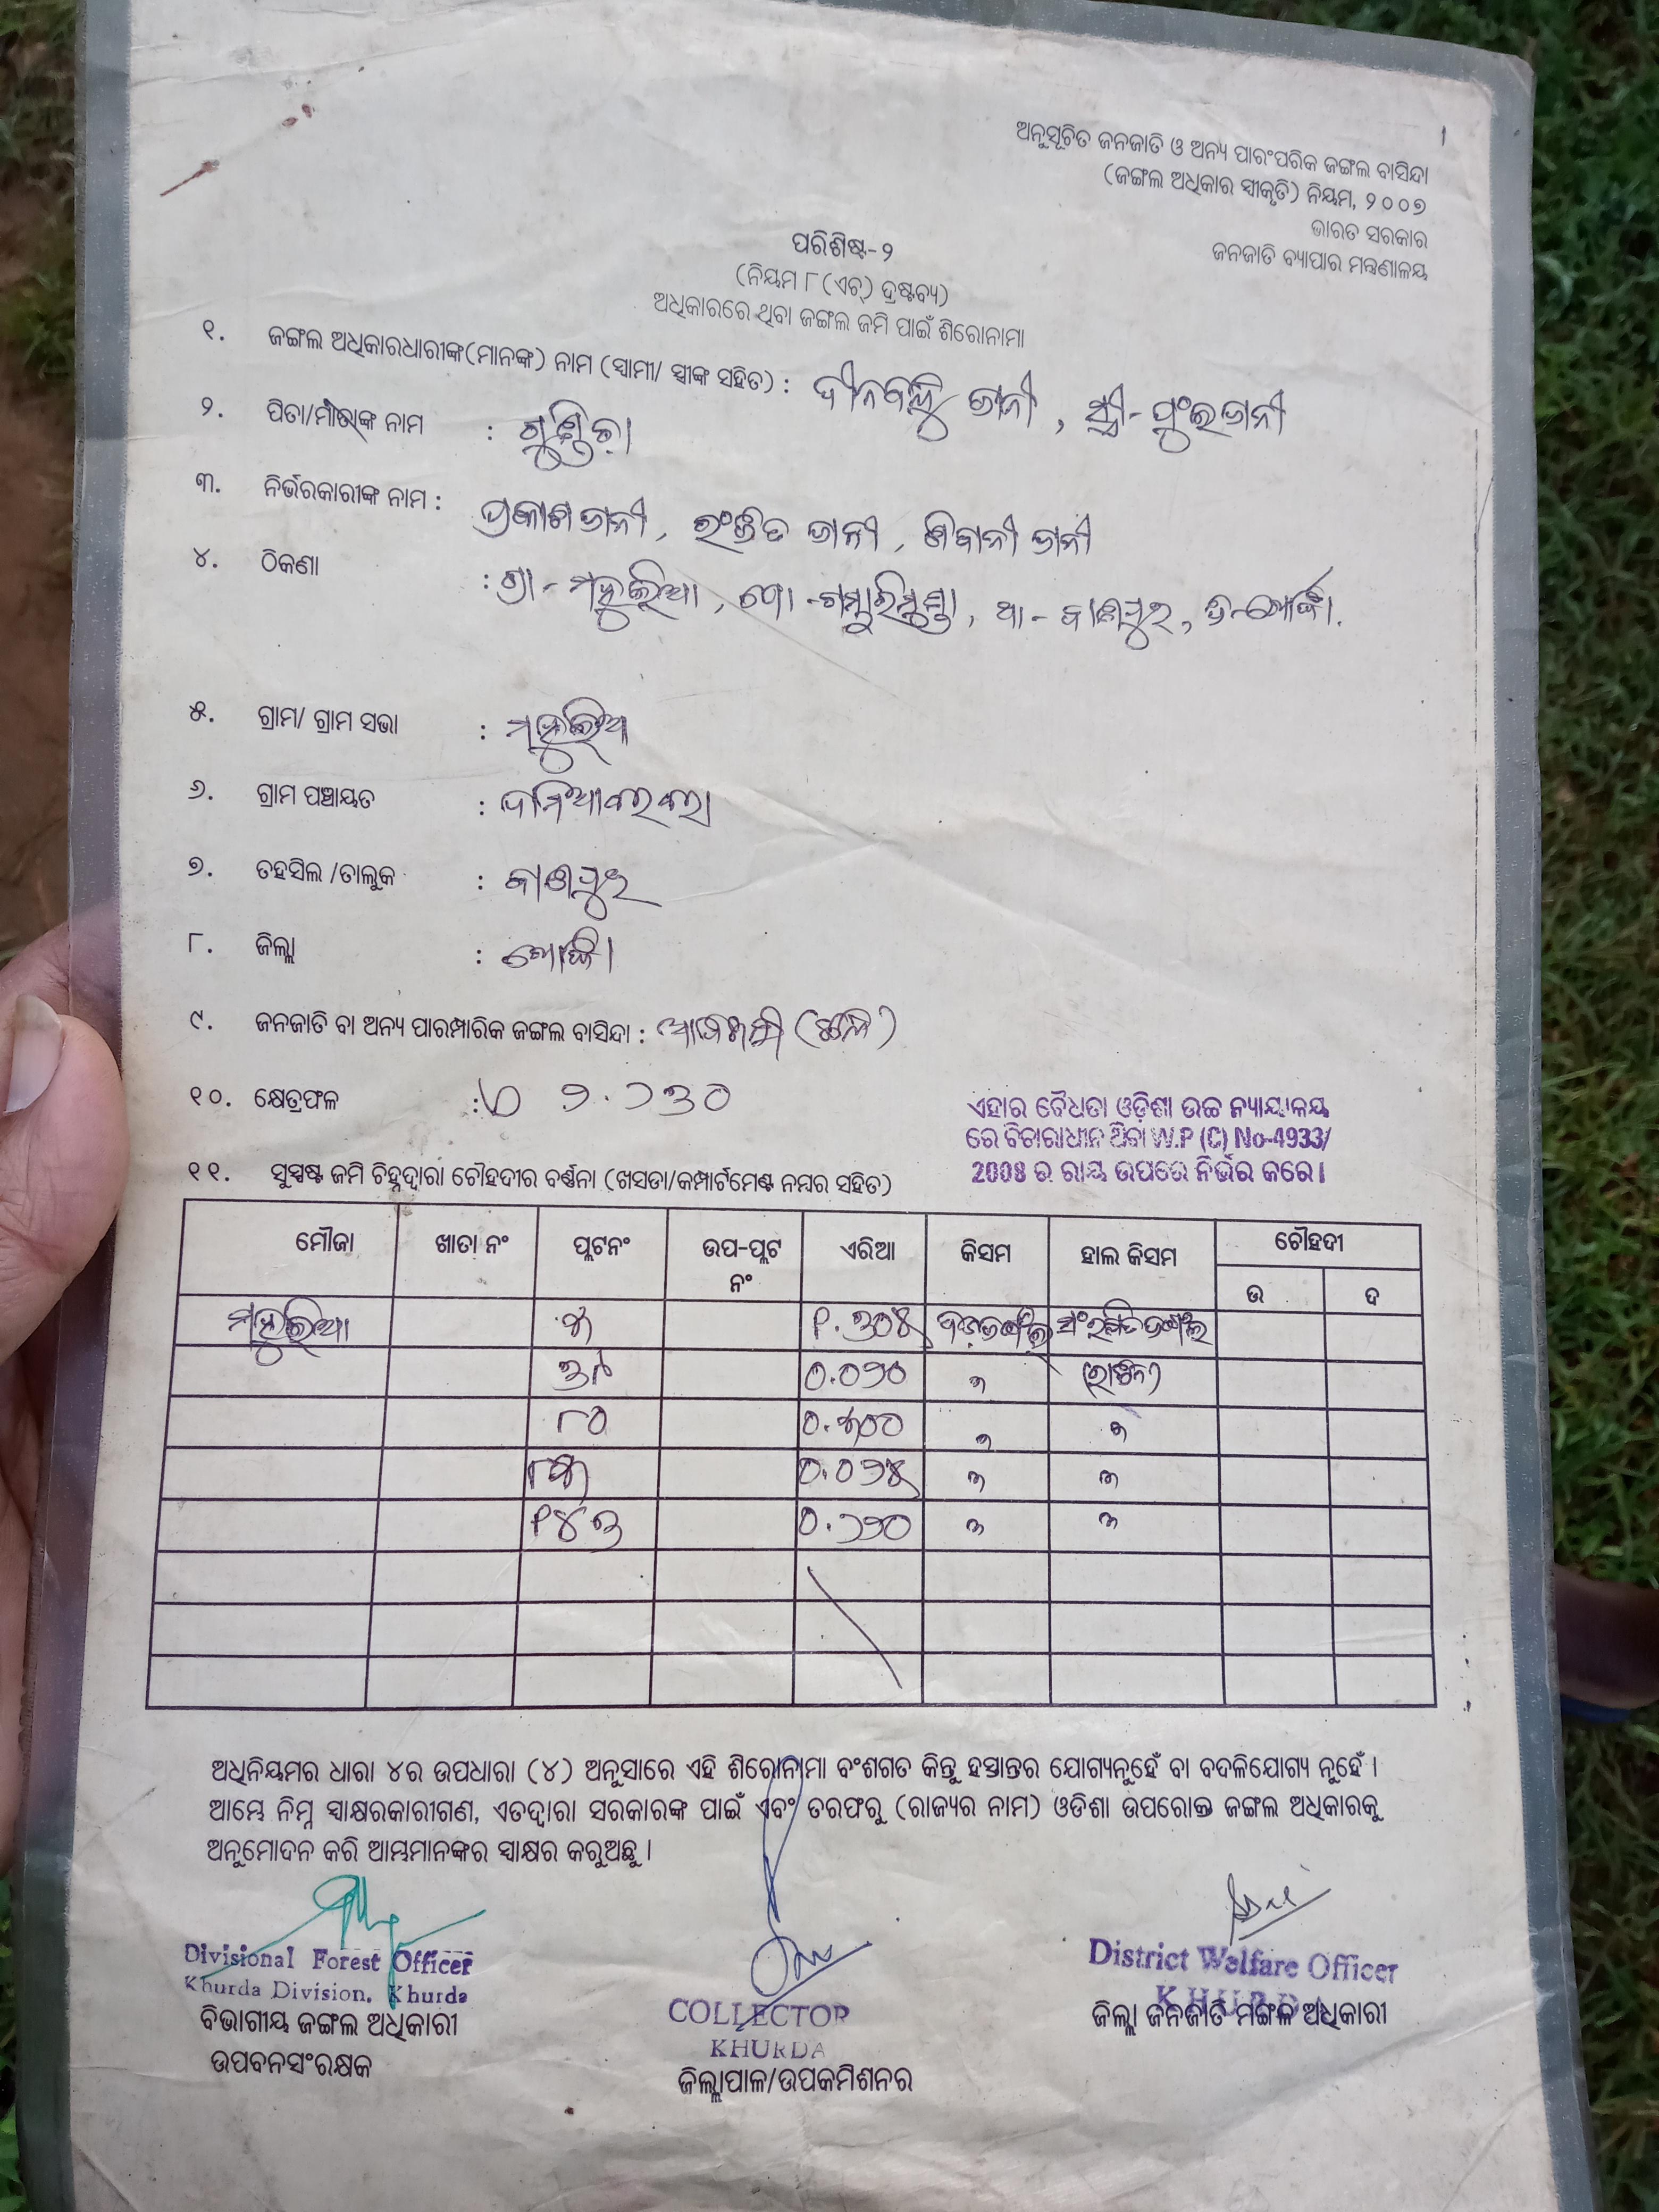 ଅନୁସୂଚିତ ଜନଜାତି ଓ ଅନ୍ୟ ପାରଂପରିକ ଜଙ୍ଗଲ ବାସିନ୍ଦା
(ଜଙ୍ଗଲ ଅଧିକାର ସ୍ୱୀକୃତି) ନିୟମ, ୨୦୦୭
ଭାରତ ସରକାର
ଜନଜାତି ବ୍ୟାପାର ମନ୍ତ୍ରଣାଳୟ
ପରିଶିଷ୍ଟ-୨
(ନିୟମ ୮ (ଏଚ୍) ଦ୍ରଷ୍ଟବ୍ୟ)
ଅଧିକାରରେ ଥିବା ଜଙ୍ଗଲ ଜମି ପାଇଁ ଶିରୋନାମା
୧. ଜଙ୍ଗଲ ଅଧିକାରଧାରୀଙ୍କ(ମାନଙ୍କ) ନାମ (ସ୍ୱାମୀ/ ସ୍ତ୍ରୀଙ୍କ ସହିତ) : ଦୀନବନ୍ଧୁ ଜାନୀ, ସ୍ତ୍ରୀ-
୨. ପିତା/ମାତାଙ୍କ ନାମ : ଗୁଣ୍ଡିଚା
୩. ନିର୍ଭରକାରୀଙ୍କ ନାମ : ପ୍ରକାଶ ଜାନୀ, ରଂଜିତ ଜାନୀ, ଶିବାନୀ ଜାନୀ
୪. ଠିକଣା : ଗ୍ରା- ମହୁଲିଆ, ପୋ- ଗମ୍ଭାରିମୁଣ୍ଡା, ଥା- ବାଣପୁର, ଜି-ଖୋର୍ଦ୍ଧା.
୫. ଗ୍ରାମ/ ଗ୍ରାମ ସଭା : ମହୁଲିଆ
୬. ଗ୍ରାମ ପଞ୍ଚାୟତ :
୭. ତହସିଲ /ତାଲୁକ : ବାଣପୁର
୮. ଜିଲ୍ଲା : ଖୋର୍ଦ୍ଧା
୯. ଜନଜାତି ବା ଅନ୍ୟ ପାରମ୍ପାରିକ ଜଙ୍ଗଲ ବାସିନ୍ଦା : ଆଦିବାସୀ
୧୦. କ୍ଷେତ୍ରଫଳ : ୨.୨୩୦
ଏହାର ବୈଧତା ଓଡ଼ିଶା ଉଚ୍ଚ ନ୍ୟାୟାଳୟ
ରେ ବିଚାରାଧୀନ ଥିବା W.P (C) No-4933/
2008 ର ରାୟ ଉପରେ ନିର୍ଭର କରେ।
୧୧. ସୁସ୍ପଷ୍ଟ ଜମି ଚିହ୍ନଦ୍ୱାରା ଚୌହଦୀର ବର୍ଣ୍ଣନା (ଖସଡା/କମ୍ପାର୍ଟମେଣ୍ଟ ନମ୍ବର ସହିତ)
ମୌଜା ଖାତା ନଂ ପ୍ଲଟନଂ ଉପ-ପ୍ଲଟ ନଂ ଏରିଆ କିସମ ହାଲ କିସମ ଚୌହଦୀ
ଉ ଦ
ମହୁଲିଆ ସଂରକ୍ଷିତ ଜଙ୍ଗଲ
୦.୦୨୦
୮୦
୧୪୩ ୦.୨୨୦
ଅଧିନିୟମର ଧାରା ୪ର ଉପଧାରା (୪) ଅନୁସାରେ ଏହି ଶିରୋନାମା ବଂଶଗତ କିନ୍ତୁ ହସ୍ତାନ୍ତର ଯୋଗ୍ୟନୁହେଁ ବା ବଦଳିଯୋଗ୍ୟ ନୁହେଁ ।
ଆମ୍ଭେ ନିମ୍ନ ସ୍ୱାକ୍ଷରକାରୀଗଣ, ଏତଦ୍ୱାରା ସରକାରଙ୍କ ପାଇଁ ଏବଂ ତରଫରୁ (ରାଜ୍ୟର ନାମ) ଓଡିଶା ଉପରୋକ୍ତ ଜଙ୍ଗଲ ଅଧିକାରକୁ
ଅନୁମୋଦନ କରି ଆମ୍ଭମାନଙ୍କର ସ୍ୱାକ୍ଷର କରୁଅଛୁ ।
Divisional Forest Officer
Khurda Division, Khurda
ବିଭାଗୀୟ ଜଙ୍ଗଲ ଅଧିକାରୀ
ଉପବନସଂରକ୍ଷକ
COLLECTOR
KHURDA
ଜିଲ୍ଲାପାଳ/ଉପକମିଶନର
District Welfare Officer
KHURDA
ଜିଲ୍ଲା ଜନଜାତି ମଙ୍ଗଳ ଅଧିକାରୀ